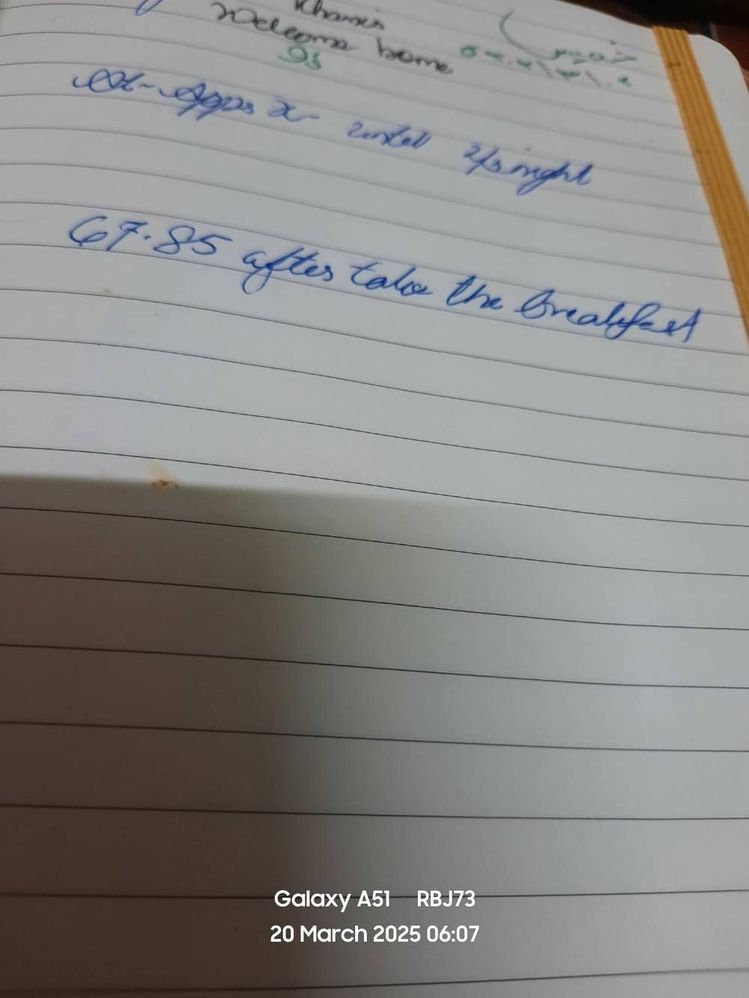 Khamis
Welcome home
خميس
93
Ex-Apps x- until 2/3 night
67.85 after take the breakfast
Galaxy A51 RBJ73
20 March 2025 06:07